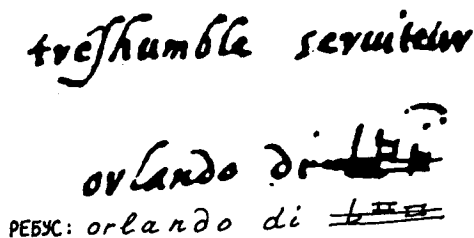 treshumble seruiteur
orlando di
РЕБУС: orlando di